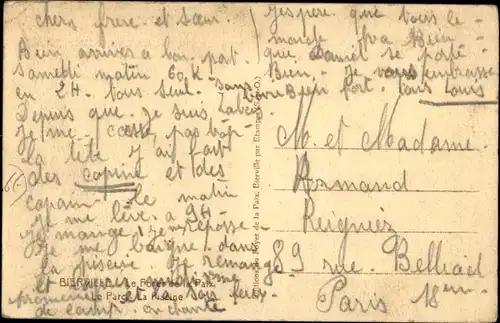 chers frere et sœur
Bien arrivés a bon port
samedi matin 60 K
en 2H tous seul sans
Depuis que je suis la
je me casse pas
la tête y ai fait
des copine et des
copain le matin
je me lève a 9H
je mange je me repose
je me baigne dans
la piscine Je remange
et le soir feux
promenade
de camp. enchanté
J'espère que tous le
monde va bien
que Daniel se porte
Bien. Je vous embrasse
bien fort. tous Louis
M. et Madame
Armand
Reignier
89 rue Belliard
Paris 18em
BIERVILLE. Le Foyer de la Paix
Le Parc. La Piscine
Edition du Foyer de la Paix, Bierville par Etampes (S.-&-O.)